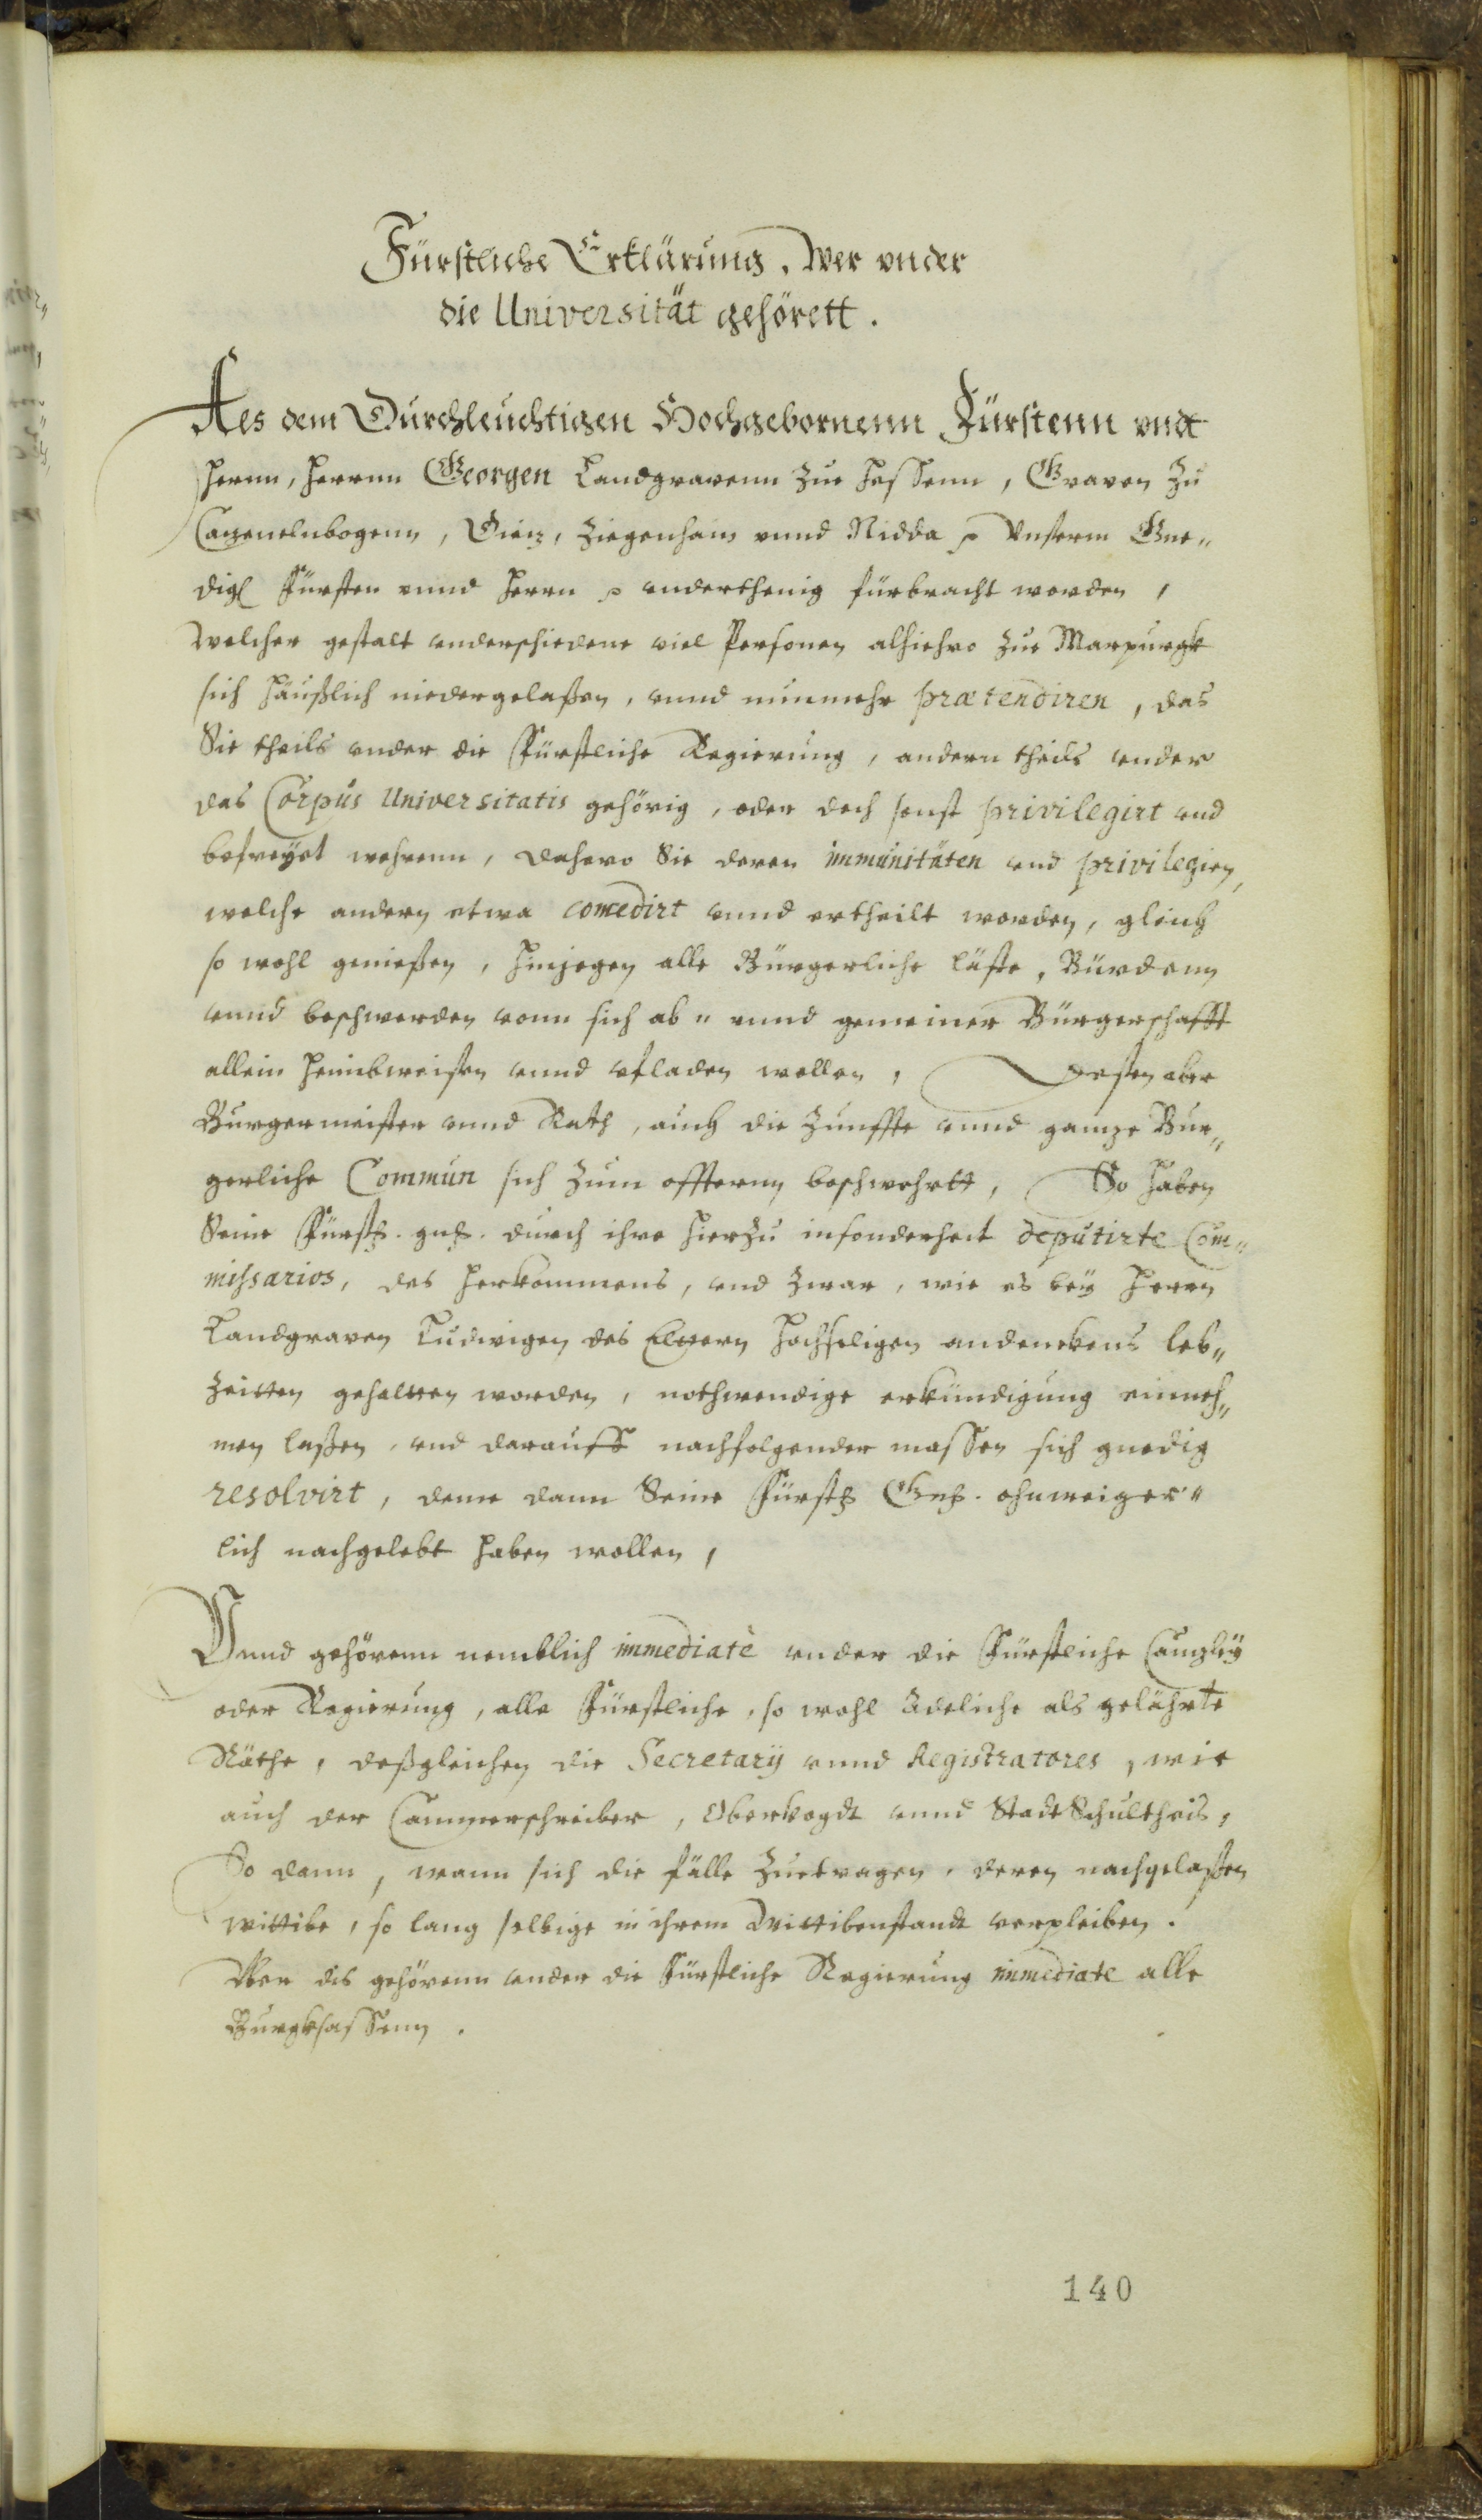 Fürstliche Erklärung, Wer vnder
die Universität gehörett.
Als dem Durchleuchtigen Hochgebornenn Fürstenn vndt
Herrn, Herrnn Georgen Landgravenn zue Hessenn, Graven zu
Cazenelnbogenn, Diez, Ziegenhain vnnd Nidda p Vnserm Gne„
digl Fürsten vnnd Herrn p vnderthenig fürbracht worden,
Welcher gestalt vnderschiedene viel Personen alhiehro zue Marpurgk
sich häußlich niedergelaßen, vnnd nunmehr prætendiren, das
Sie theils vnder die Fürstliche Regierung, andern theils vnder
das Corpus Universitatis gehörig, oder doch sonst privilegirt vnd
befreyet wehrenn, dahero Sie deren immunitäten vnd privilegien,
welche andern etwa concedirt vnnd ertheilt worden, gleich
so wohl genießen, hinjegen alle Bürgerliche läste, Bürdenn
vnnd beschwerden vonn sich ab„ vnnd gemeiner Bürgerschafft
allein heimbweisen vnnd vfladen wollen, Dessen aber
Burgermeister vnnd Rath, auch die Zunffte vnnd ganze Bur„
gerliche Commun sich zum offternn beschwehrtt, So haben
Seine Fürstl. gnl. durch ihre hierzu insonderheit deputirte Com„
missarios, des herkommens, vnd zwar, wie es bey Herrn
Landgraven Ludwigen des Elttern hochseligen andenckens leb„
zeitten gehaltten worden, nothwendige erkündigung einneh„
men laßen, vnd darauff nachfolgender massen sich gnedig
resolvirt, deme dann Seine Fürstl Gnl. ohnweiger„
lich nachgelebt haben wollen,
Vnnd gehörenn nemblich immediatè vnder die Fürstliche Canzley
oder Regierung, alle Fürstliche, so wohl Adeliche als gelährte
Räthe, deßgleichen die Secretarij vnnd Registratores, wie
auch der Cammerschreiber, Obervogdt vnnd StadtSchultheis,
So dann, wann sich die fälle zuetragen, deren nachgelaßen
wittibe, so lang selbige in ihrem Wittibenstandt verpleiben.
Vber dis gehörenn vnder die Fürstliche Regierung immediate alle
Burgksassenn.
140